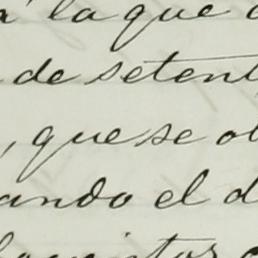 a la que
de setent
, que se ob
ando el d